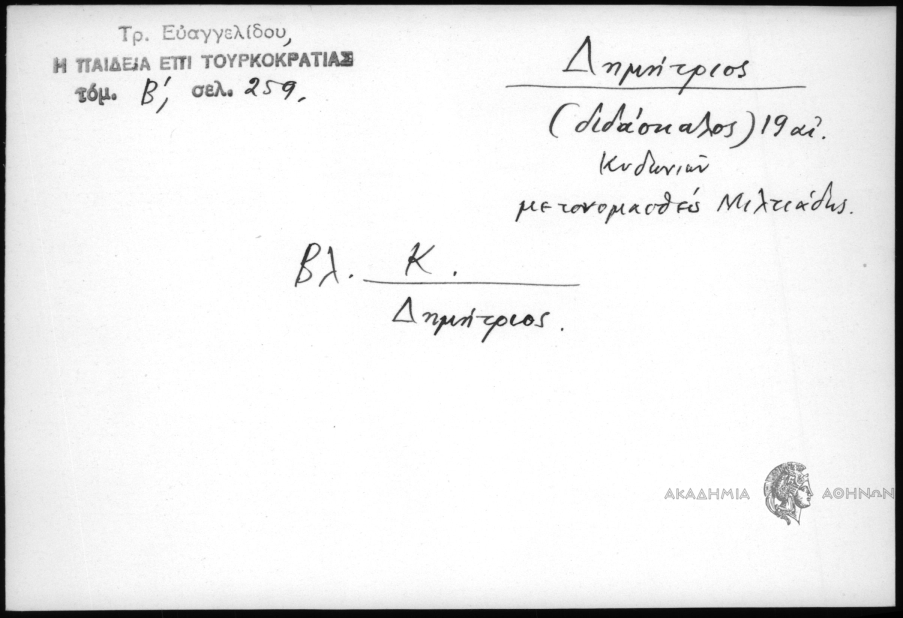 Τρ. Εὐαγγελίδου,
Η ΠΑΙΔΕΙΑ ΕΠΙ ΤΟΥΡΚΟΚΡΑΤΙΑΣ
τόμ. Β', σελ. 259.
Δημήτριος
(διδάσκαλος) 19 αἰ.
Κυδωνιῶν
μετονομασθείς Μιλτιάδης.
Βλ. Κ.
Δημήτριος.
ΑΚΑΔΗΜΙΑ ΑΘΗΝΩΝ